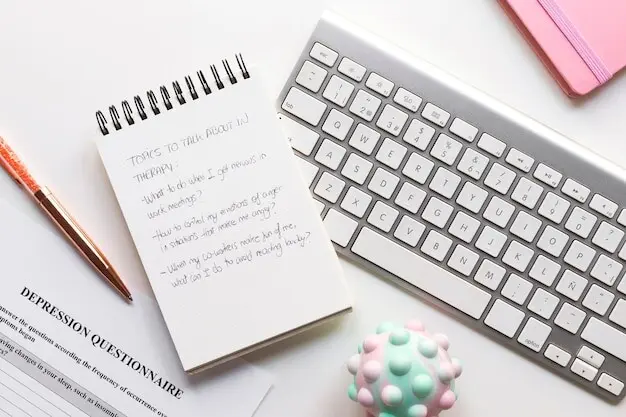 TOPICS TO TALK ABOUT IN
THERAPY:
-What to do when I get nervous in
work meetings?
-How to control my reactions of anger
in situations that make me angry?
-When my co-workers make fun of me,
what can I do to avoid reacting badly?
DEPRESSION QUESTIONNAIRE
answer the questions according the frequency of occurrence ove
ptoms began
aving changes in your sleep, such as insomni
ry?